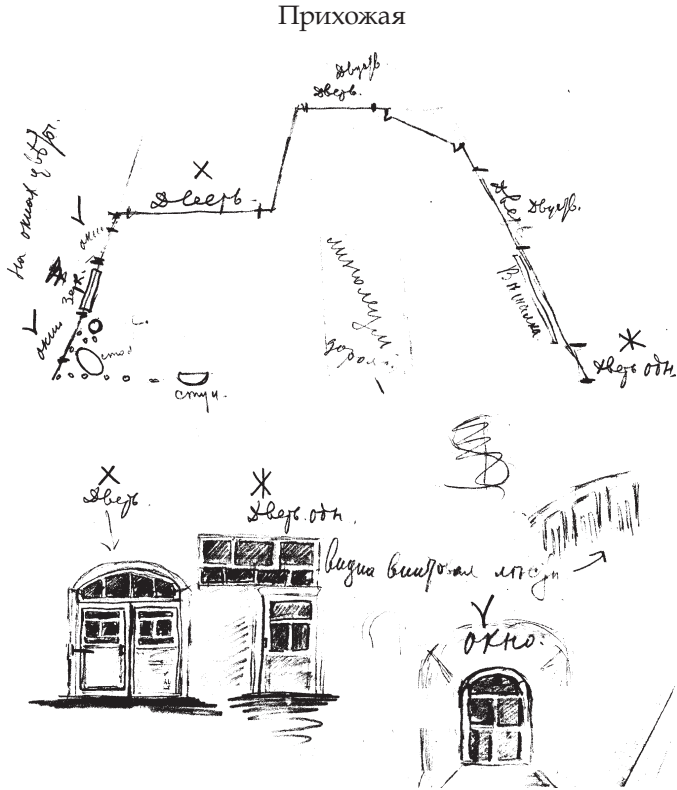 Прихожая
Двуств
Дверь.
На окнах цветы.
Дверь
окно
Зерк.
окно
стол
стул.
линолеум
Дверь
Двуств.
Вешалка.
Дверь одн.
Дверь.
Дверь одн.
видна винтовая лестн
окно.